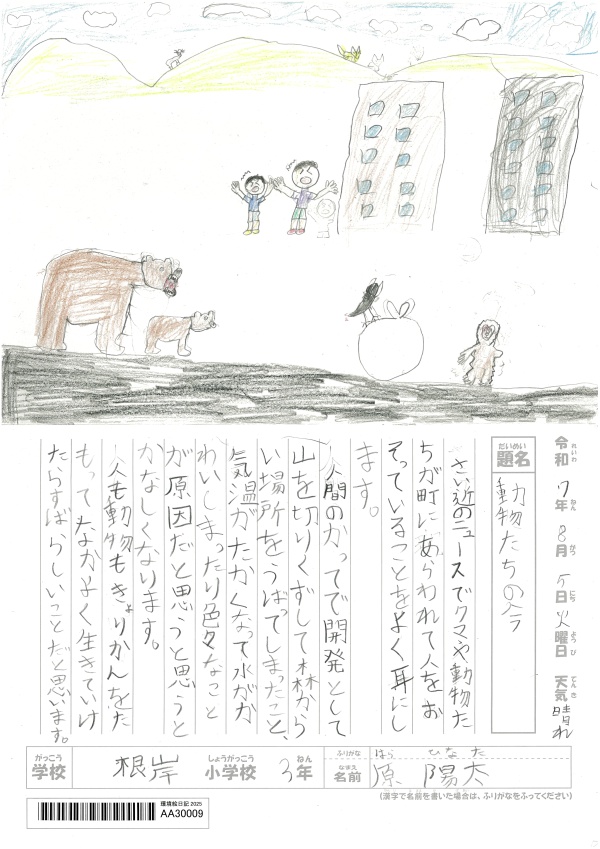 令和7年8月5日火曜日 天気晴れ
れいわ ねん がつ にち ようび てんき
だいめい
題名 動物たちの今
さい近のニュースでクマや動物た
ちが町にあらわれて人をお
そっていることをよく耳にし
ます。
人間のかってで開発として
山を切りくずして森から
い場所をうばってしまったこと、
気温がたかくなって水がか
わいしまったり色々なこと
が原因だと思うと思うと
かなしくなります。
人も動物もきょりかんをた
もってなかよく生きていけ
たらすばらしいことだと思います。
がっこう しょうがっこう ねん
学校 根岸 小学校 3年
ふりがな はら ひなた
なまえ
名前 原 陽太
(漢字で名前を書いた場合は、ふりがなをふってください)
環境絵日記 2025
AA30009